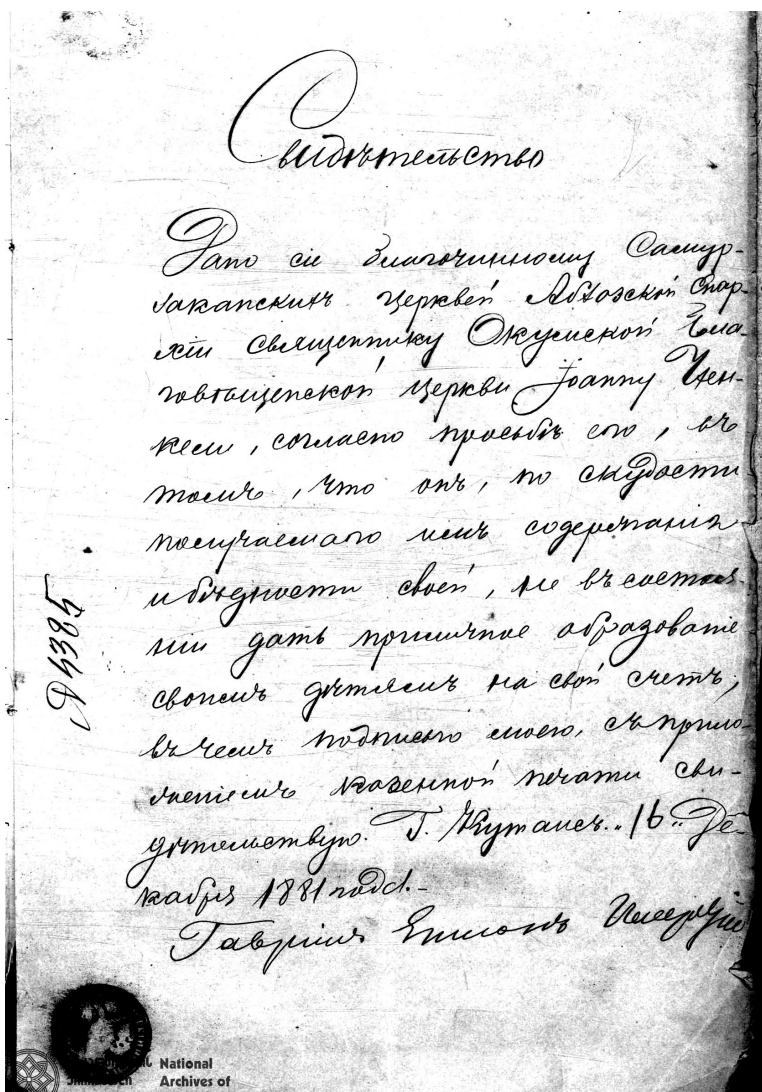 Свидѣтельство
Дано сіе благочинному Самур-
заканскихъ церквей Абхазской Епар-
хіи священнику Окумской Бла-
говѣщенской церкви Іоанну
кели, согласно просьбѣ его, въ
томъ, что онъ, по скудости
получаемаго имъ содержанія
и бѣдности своей, не въ состоя-
ніи дать приличное образованіе
своимъ дѣтямъ на свой счетъ,
въ чемъ подписью моею, съ прило-
женіемъ казенной печати сви-
дѣтельствую. Г. Кутаисъ. „16„ Де-
кабря 1881 года.-
Гавріилъ Епископъ Имеретіи
№ 4385
National
Archives of